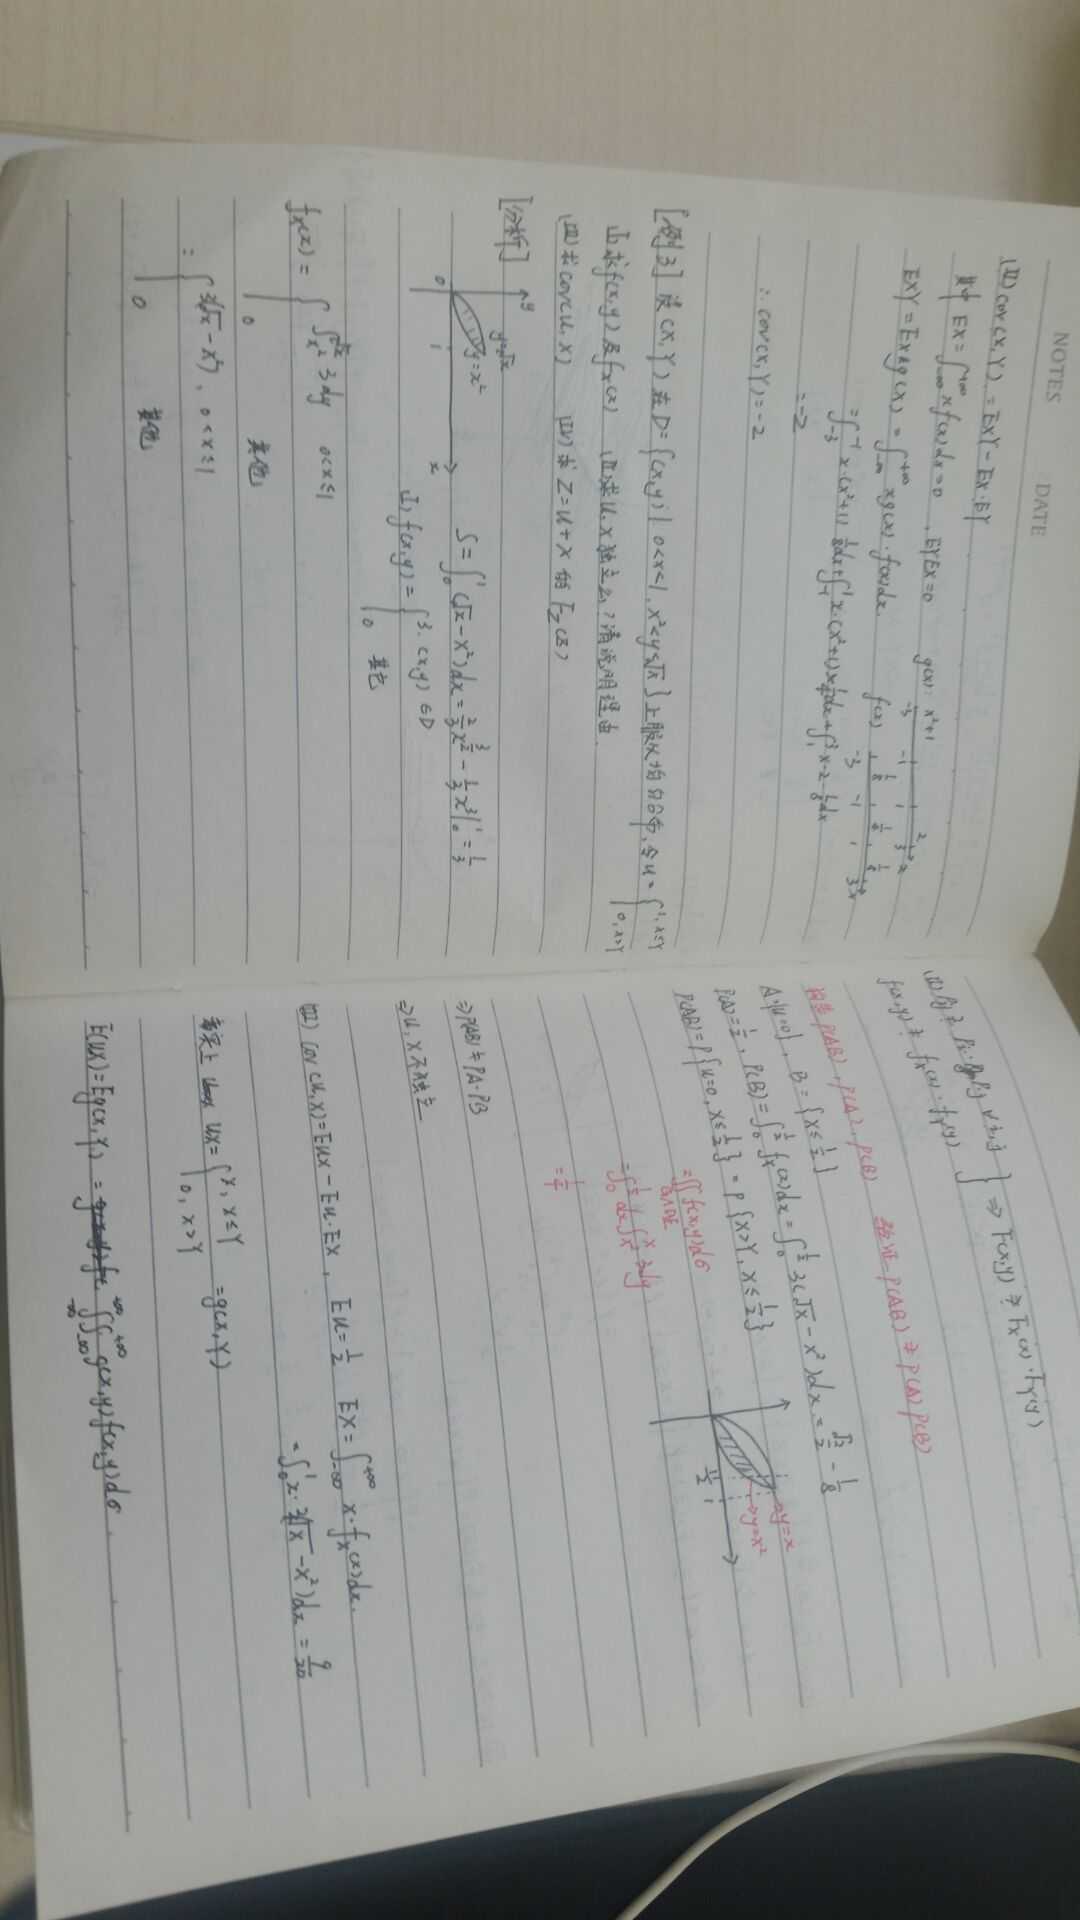 NOTES DATE
(II) cov(X,Y) = EXY - EX·EY
其中 EX = ∫_{-∞}^{+∞} x f(x)dx = 0, EYEX=0
g(x): x²+1 2
-3 -1 1 3 x
EXY = EXg(X) = ∫_{-∞}^{+∞} xg(x)·f(x)dx.
f(x) 1/8 1/8
-3 -1 1 3 x
= ∫_{-3}^{-1} x·(x²+1) 1/8 dx + ∫_{-1}^{1} x·(x²+1)× dx + ∫_{1}^{3} x·2 1/8 dx
= -2
∴ cov(X,Y) = -2
[例3] 设(X,Y)在D={(x,y)| 0<x<1, x²<y≤√x}上服从均匀分布, 令U={1, X≤Y
0, X>Y
(I) 求f(x,y)及f_X(x) (II) 求U,X独立么?请说明理由.
(III) 求cov(U,X) (IV) 求Z=U+X的F_Z(z)
[分析] y y=√x
y=x²
0 1 x
S = ∫_0^1 (√x - x²)dx = 2/3 x^{3/2} - 1/3 x³|_0^1 = 1/3
(I) f(x,y) = {3, (x,y)∈D
0 其它
f_X(x) = {∫_{x²}^{√x} 3dy 0<x≤1
0 其他
= {3(√x - x²), 0<x≤1
0 其他
∀i,j } ⇒ F(x,y) ≠ F_X(x)·F_Y(y)
f(x,y) ≠ f_X(x)·f_Y(y)
P(AB), P(A), P(B) 验证 P(AB) ≠ P(A)P(B)
A={U=0}, B={X≤1/2}
P(A)=1/2, P(B)=∫_0^{1/2} f_X(x)dx = ∫_0^{1/2} 3(√x - x²)dx = √2/2 - 1/8
P(AB)=P{U=0, X≤1/2} = P{X>Y, X≤1/2}
y=x
y=x²
1/2 1
=∬ f(x,y)dσ
=∫_0^{1/2} dx ∫_{x²}^{x} 3dy
=1/4
⇒P(AB)≠PA·PB
⇒U,X不独立
(III) cov(U,X)=EUX - EU·EX, EU=1/2 EX=∫_{-∞}^{+∞} x·f_X(x)dx.
=∫_0^1 x·3(√x - x²)dx = 9/20
事实上 UX={X, X≤Y
0, X>Y
=g(X,Y)
E(UX)=Eg(X,Y) = ∫_{-∞}^{+∞}∫_{-∞}^{+∞} g(x,y)f(x,y)dσ.